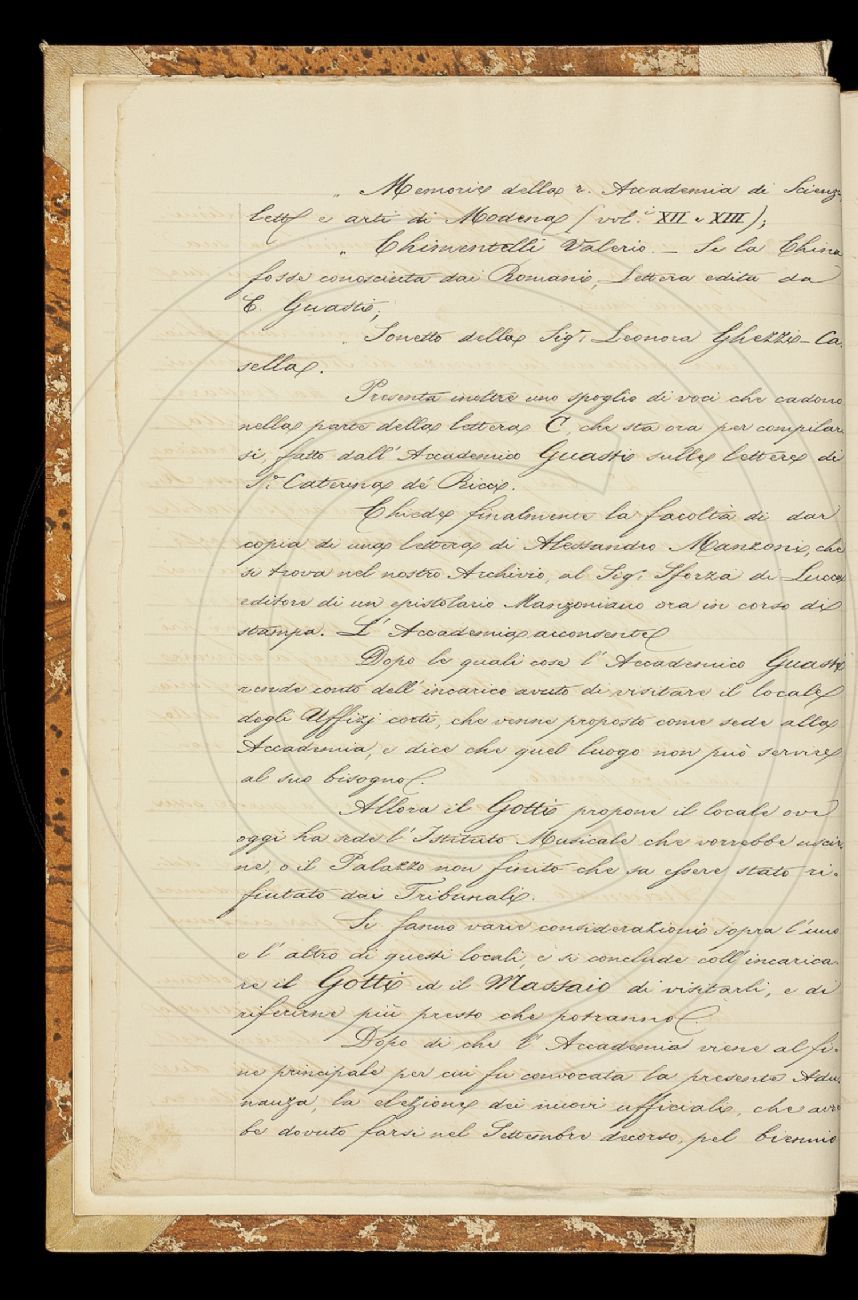 " Memorie della r. Accademia di Scienz.
lett. e arti di Modena (vol.i XII e XIII);
" Chimentelli Valerio. — Se la China
fosse conosciuta dai Romani, Lettera edita da
C. Guasti;
" Sonetto della Sig.ra Leonora Ghezzi-Ca-
sella.
Presenta inoltre uno spoglio di voci che cadono
nella parte della lettera C, che sta ora per compilar-
si, fatto dall'Accademico Guasti sulle lettere di
S.a Caterina de' Ricci.
Chiede finalmente la facoltà di dar
copia di una lettera di Alessandro Manzoni, che
si trova nel nostro Archivio, al Sig.r Sforza di Lucca
editore di un epistolario Manzoniano ora in corso di
stampa. L'Accademia acconsente.
Dopo le quali cose l'Accademico Guasti
rende conto dell'incarico avuto di visitare il locale
degli Uffizj corti, che venne proposto come sede alla
Accademia, e dice che quel luogo non può servire
al suo bisogno.
Allora il Gotti propone il locale ove
oggi ha sede l'Istituto Musicale che vorrebbe uscir-
ne, o il Palazzo non finito che sa essere stato ri-
fiutato dai Tribunali.
Si fanno varie considerazioni sopra l'uno
e l'altro di questi locali, e si conclude coll'incarica-
re il Gotti ed il Massaio di visitarli, e di
riferirne più presto che potranno.
Dopo di che l'Accademia viene al fi-
ne principale per cui fu convocata la presente Adu-
nanza, la elezione dei nuovi ufficiali, che avreb-
be dovuto farsi nel Settembre decorso, pel biennio